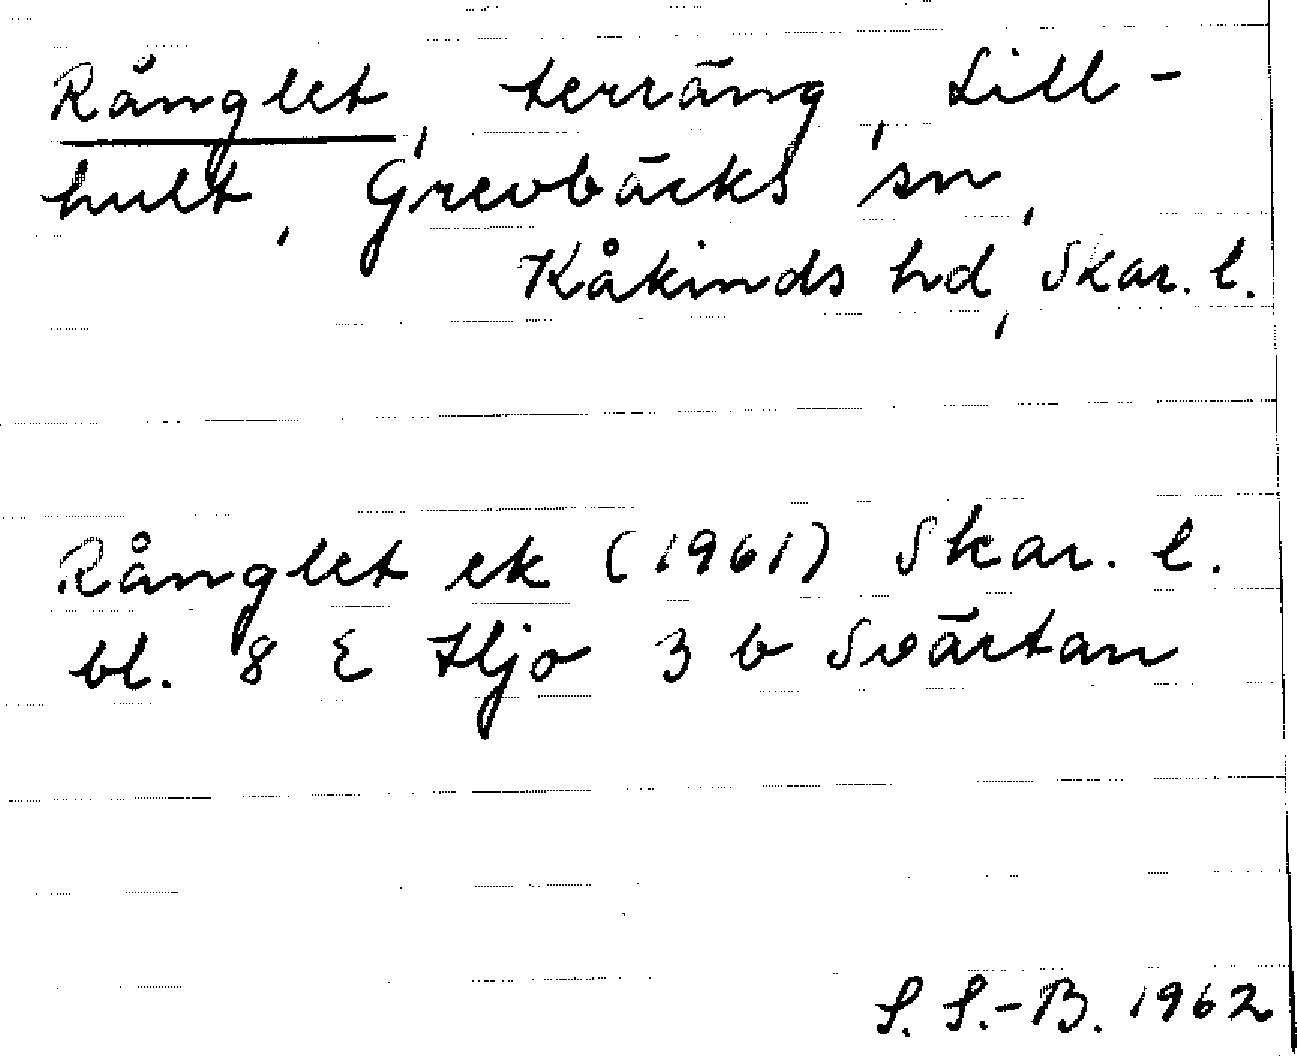 Rånglet, terräng, Lill-
hult, Grevbäcks sn,
Kåkinds hd, Skar. l.
Rånglet ek (1961) Skar. l.
bl. 8 E Hjo 3 b Svärtan
S. S.-B. 1962